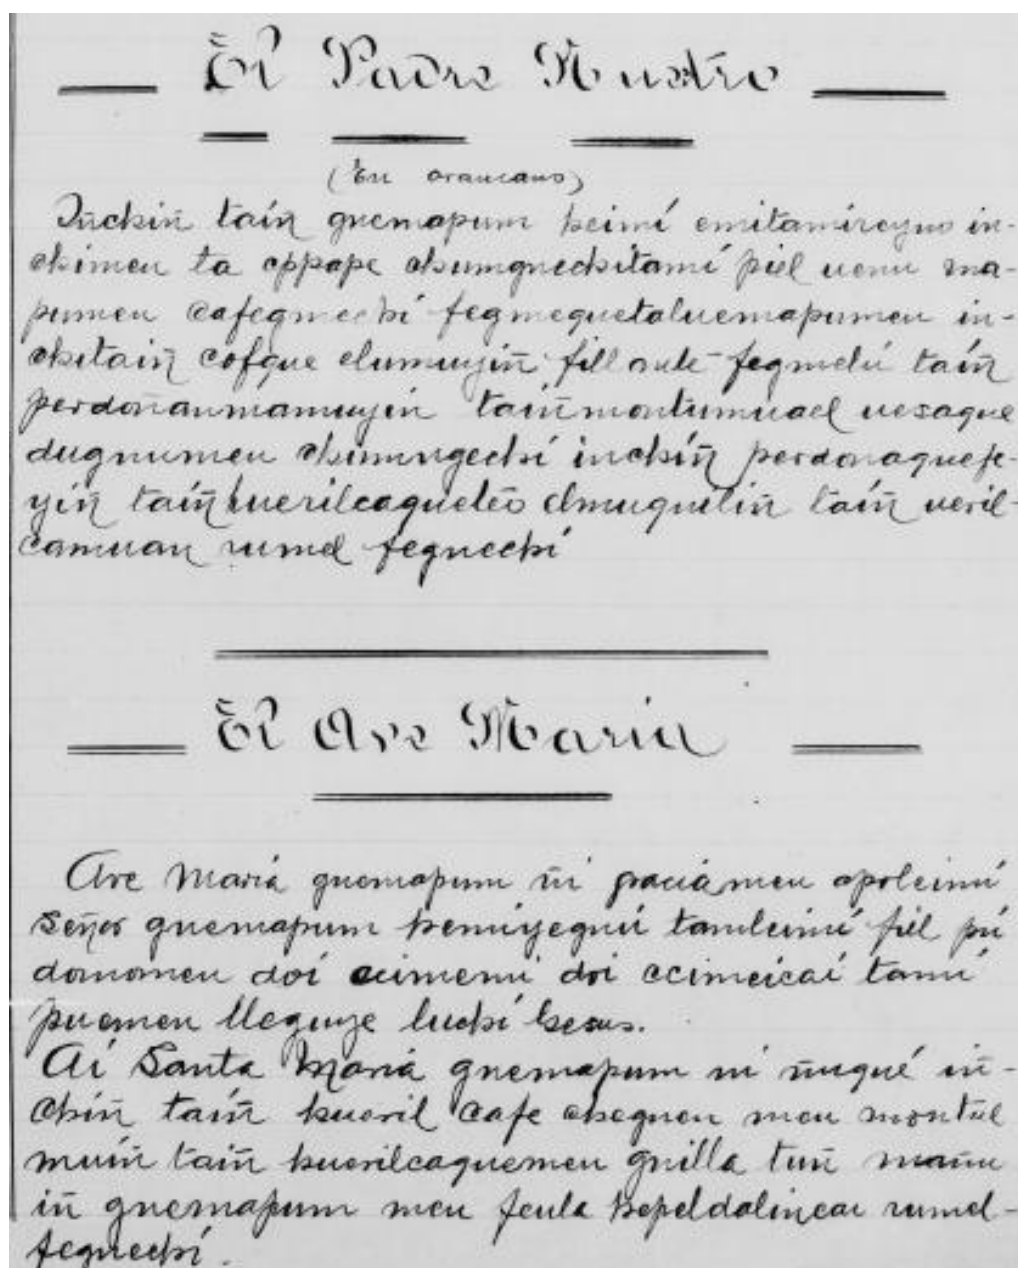 El Padre Nuestro
(En araucano)
Inchiñ taiñ gnemapum keimí emitamireyno in-
chimeu ta eppape chumgnechitamí piel uenu ma-
pumeu cafegnechi fegmequetaluemapumeu in-
chitaiñ cofque elumuyiñ fill ante fegmelú taiñ
perdoñanmamuyin taiñ montumuael uesaque
dugnumeu chumngechi inchiñ perdonaquefe-
yiñ taiñ huerilcaqueteo elmuquiliñ taiñ ueril-
camuan rumel fegnechi
El Ave Maria
Ave Maria gnemapum ñi gracia meu apoleimi
Señor gnemapum kemiyegnú tamleimi fill pú
domomeu doi cimemi doi ccimeicai tami
puemeu llegnye luchi kesus.
Ai Santa Maria gnemapum ni ñuqué in-
chiñ taiñ hueril cafe chegneu meu montul
muiñ taiñ huerilcaquemeu gnilla tuñ mamu
iñ gnemapum meu feula kepeldalineai rumel-
fegnechi.